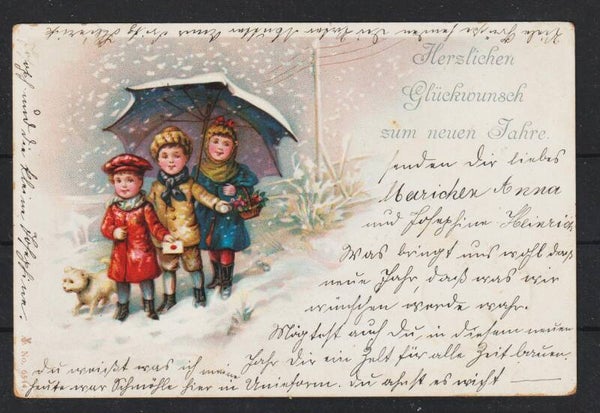 Viele Grüße senden Dir
Herzlichen
Glückwunsch
zum neuen Jahre.
senden Dir liebes
Mariechen Anna
und Josephine Heinrich
Was bringt uns wohl das
neue Jahr, daß was wir
wünschen werde wahr.
Mögtest auch du, in diesem neuen
Jahr Dir ein Zelt für alle Zeit bauen.
du weißt was ich meine
heute war Schmöhle hier in Unieform. du ahnst es nicht —
und die kleine Josephine
No. 6514